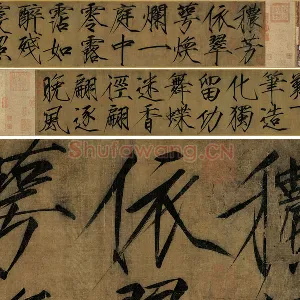 穠芳
依翠
萼煥
爛一
庭中
零露
霑如
醉殘
筆造
化獨
留功
舞蝶
迷香
徑翩
翩逐
晚風
穠
依
萼
Shufawang.CN